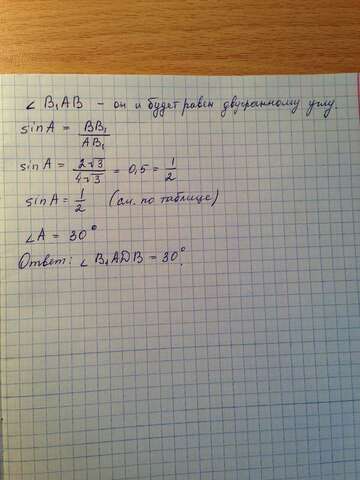 ∠ B₁AB – он и будет равен двугранному углу.
sin A = BB₁ / AB₁
sin A = 2√3 / 4√3 = 0,5 = 1/2
sin A = 1/2 (см. по таблице)
∠ A = 30°
Ответ: ∠ B₁ADB = 30°.